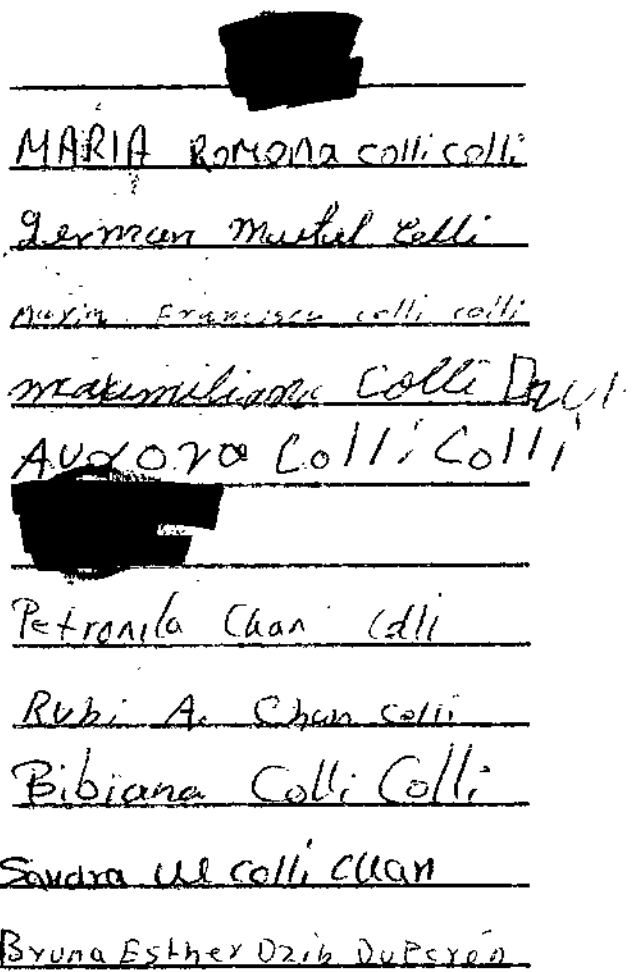 MARIA ROMONA colli colli
German Mutul Colli
Maria Francisca colli colli
maximiliana Colli Dzul
Aurora Colli Colli
Petronila Chan Colli
Rubi A. Chan Colli
Bibiana Colli Colli
Sandra colli CHan
Bruna Esther Dzib DuPerón